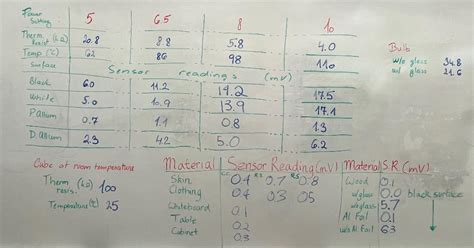 Power Setting 5 6.5 8 10
Therm. Resist (kΩ) 20.8 8.8 5.8 4.0
Temp (°C) 62 86 98 110
Surface Sensor readings (mV)
Black 60 11.2 14.2 17.5
White 5.0 10.9 13.9 17.1
P. Allum 0.7 1.1 0.8 1.3
D. Allum 2.3 4.2 5.0 6.2
Bulb
w/o glass 34.8
w/ glass 21.6
Cube at room temperature
Therm resis. 100
Temperature (°C) 25
Material Sensor Reading (mV)
Skin 0.4 0.7 0.8
Clothing 0.4 0.3 0.5
Whiteboard 0.1
Table 0.2
Cabinet 0.3
Material S.R (mV)
Wood 0.1
w/ glass 0.0 black surface
w/o glass 5.7
Al Foil 0.1
w/o Al Foil 6.3